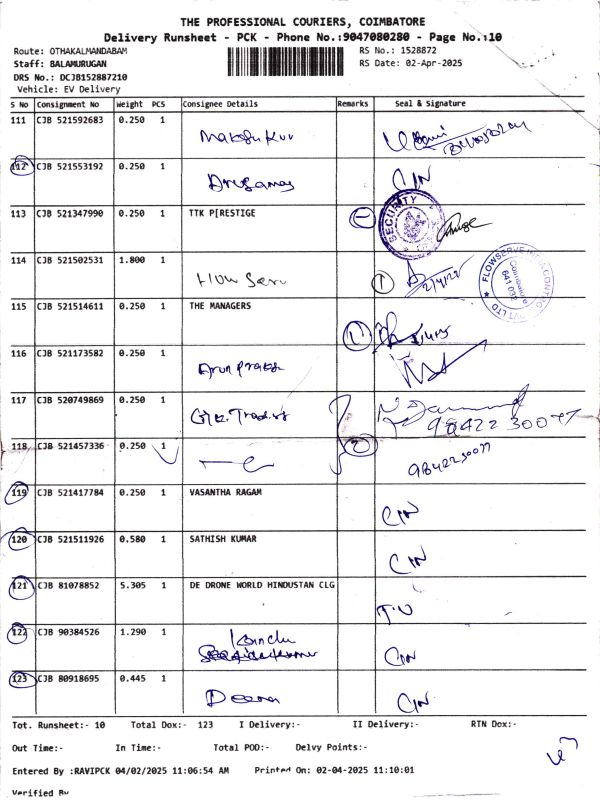 THE PROFESSIONAL COURIERS, COIMBATORE
Delivery Runsheet - PCK - Phone No.:9047080280 - Page No.:10
Route: OTHAKALMANDABAM RS No.: 1528872
Staff: BALAMURUGAN RS Date: 02-Apr-2025
DRS No.: DCJB152887210
Vehicle: EV Delivery
S No Consignment No Weight PCS Consignee Details Remarks Seal & Signature
111 CJB 521592683 0.250 1
112 CJB 521553192 0.250 1 CIN
113 CJB 521347990 0.250 1 TTK P[RESTIGE SECURITY
114 CJB 521502531 1.800 1 1 2/4/25 Coimbatore 641 032
115 CJB 521514611 0.250 1 THE MANAGERS
116 CJB 521173582 0.250 1 Arun
117 CJB 520749869 0.250 1 98422 30077
118 CJB 521457336 0.250 1 2 9842230077
119 CJB 521417784 0.250 1 VASANTHA RAGAM CIN
120 CJB 521511926 0.580 1 SATHISH KUMAR CIN
121 CJB 81078852 5.305 1 DE DRONE WORLD HINDUSTAN CLG
122 CJB 90384526 1.290 1 CIN
123 CJB 80918695 0.445 1 CIN
Tot. Runsheet:- 10 Total Dox:- 123 I Delivery:- II Delivery:- RTN Dox:-
Out Time:- In Time:- Total POD:- Delvy Points:-
Entered By :RAVIPCK 04/02/2025 11:06:54 AM Printed On: 02-04-2025 11:10:01
Verified By